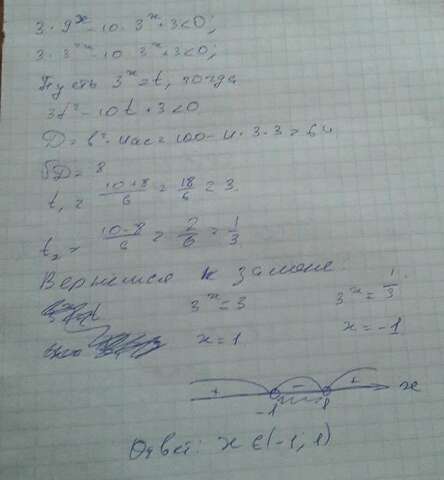 3 · 9^x - 10 · 3^x + 3 < 0;
3 · 3^2x - 10 · 3^x + 3 < 0;
Пусть 3^x = t, тогда
3t² - 10t + 3 < 0
D = b² - 4ac = 100 - 4 · 3 · 3 = 64
√D = 8
t₁ = (10+8)/6 = 18/6 = 3
t₂ = (10-8)/6 = 2/6 = 1/3
Вернемся к замене:
3^x = 3 3^x = 1/3
x = 1 x = -1
+ - + x
-1 1
Ответ: x ∈ (-1; 1)